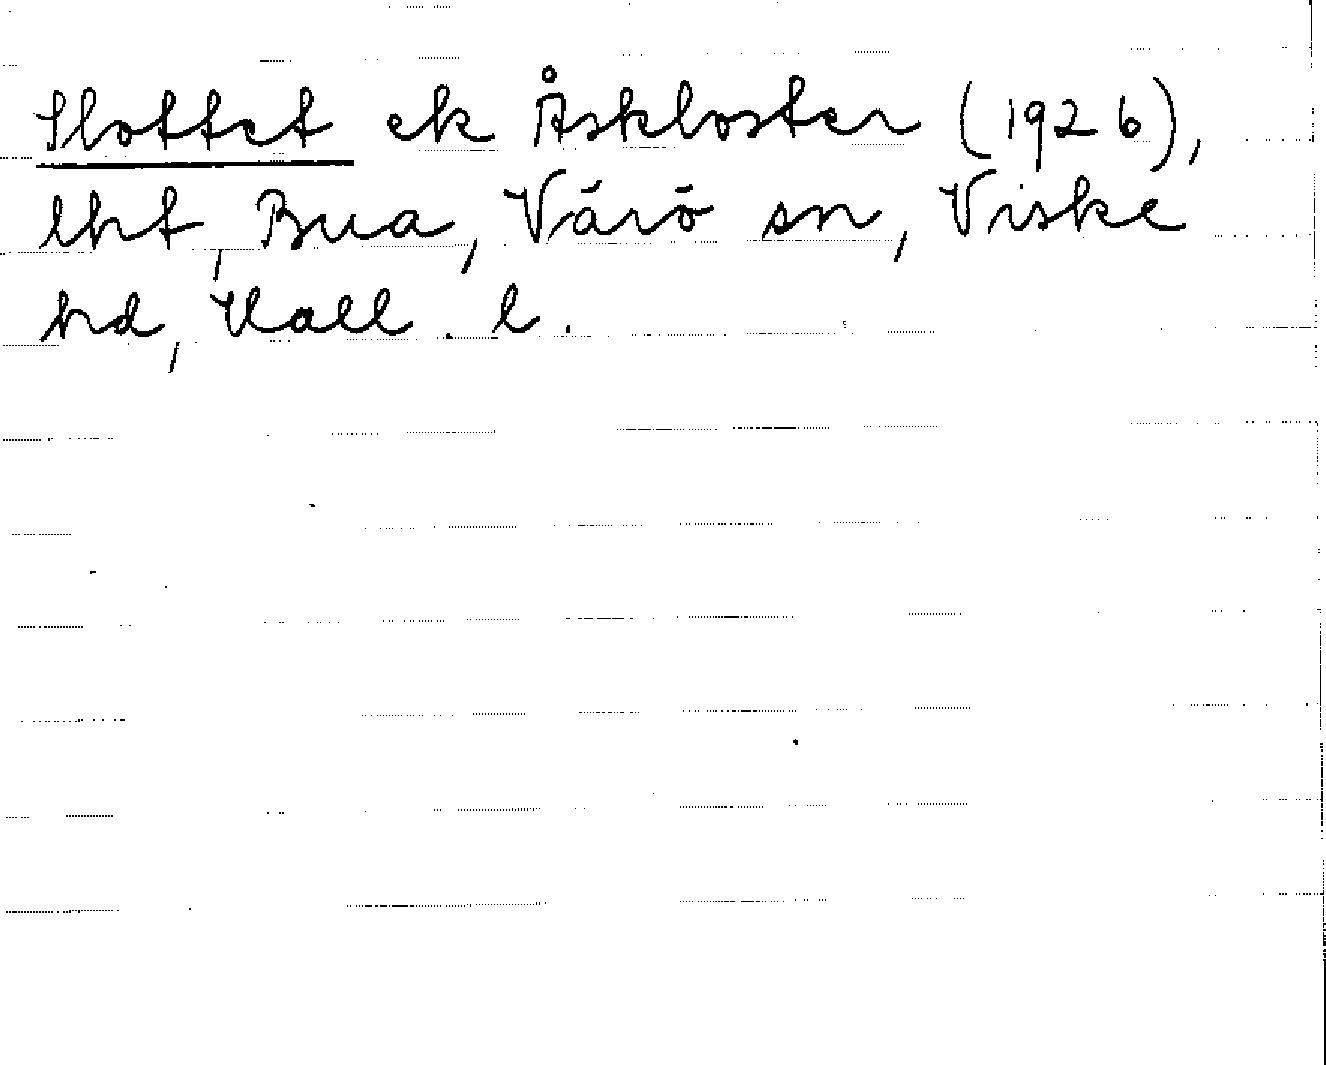 Slottet ek Åskloster (1926),
lht, Bua, Värö sn, Viske
hd, Hall. l.